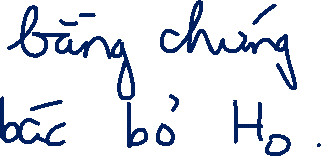 bằng chứng
bác bỏ H₀.